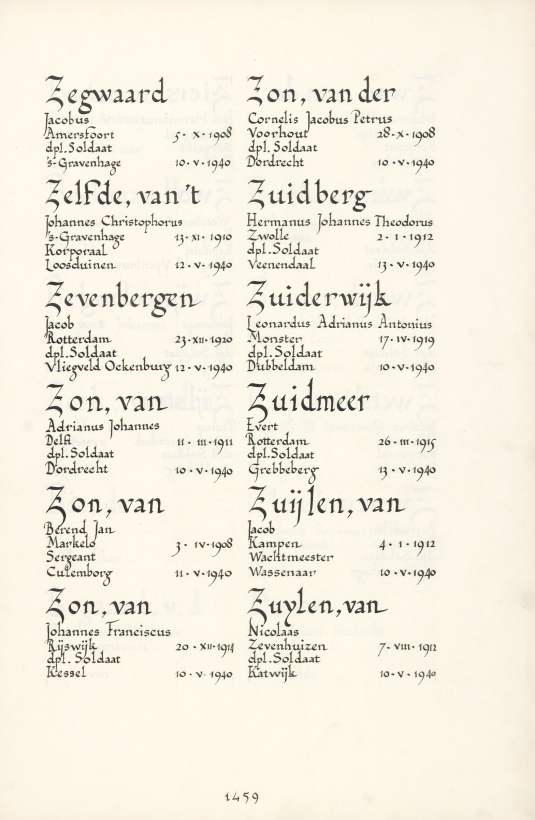 Zegwaard
Jacobus
Amersfoort 5 · X · 1908
dpl. Soldaat
's-Gravenhage 10 · V · 1940
Zelfde, van 't
Johannes Christophorus
's-Gravenhage 13 · XI · 1910
Korporaal
Loosduinen 12 · V · 1940
Zevenbergen
Jacob
Rotterdam 23 · XII · 1920
dpl. Soldaat
Vliegveld Ockenburg 12 · V · 1940
Zon, van
Adrianus Johannes
Delft 11 · III · 1911
dpl. Soldaat
Dordrecht 10 · V · 1940
Zon, van
Berend Jan
Markelo 3 · IV · 1908
Sergeant
Culemborg 11 · V · 1940
Zon, van
Johannes Franciscus
Rijswijk 20 · XII · 1914
dpl. Soldaat
Kessel 10 · V · 1940
Zon, van der
Cornelis Jacobus Petrus
Voorhout 28 · X · 1908
dpl. Soldaat
Dordrecht 10 · V · 1940
Zuidberg
Hermanus Johannes Theodorus
Zwolle 2 · 1 · 1912
dpl. Soldaat
Veenendaal 13 · V · 1940
Zuiderwijk
Leonardus Adrianus Antonius
Monster 17 · IV · 1919
dpl. Soldaat
Dubbeldam 10 · V · 1940
Zuidmeer
Evert
Rotterdam 26 · III · 1915
dpl. Soldaat
Grebbeberg 13 · V · 1940
Zuijlen, van
Jacob
Kampen 4 · 1 · 1912
Wachtmeester
Wassenaar 10 · V · 1940
Zuylen, van
Nicolaas
Zevenhuizen 7 · VIII · 1912
dpl. Soldaat
Katwijk 10 · V · 1940
1459